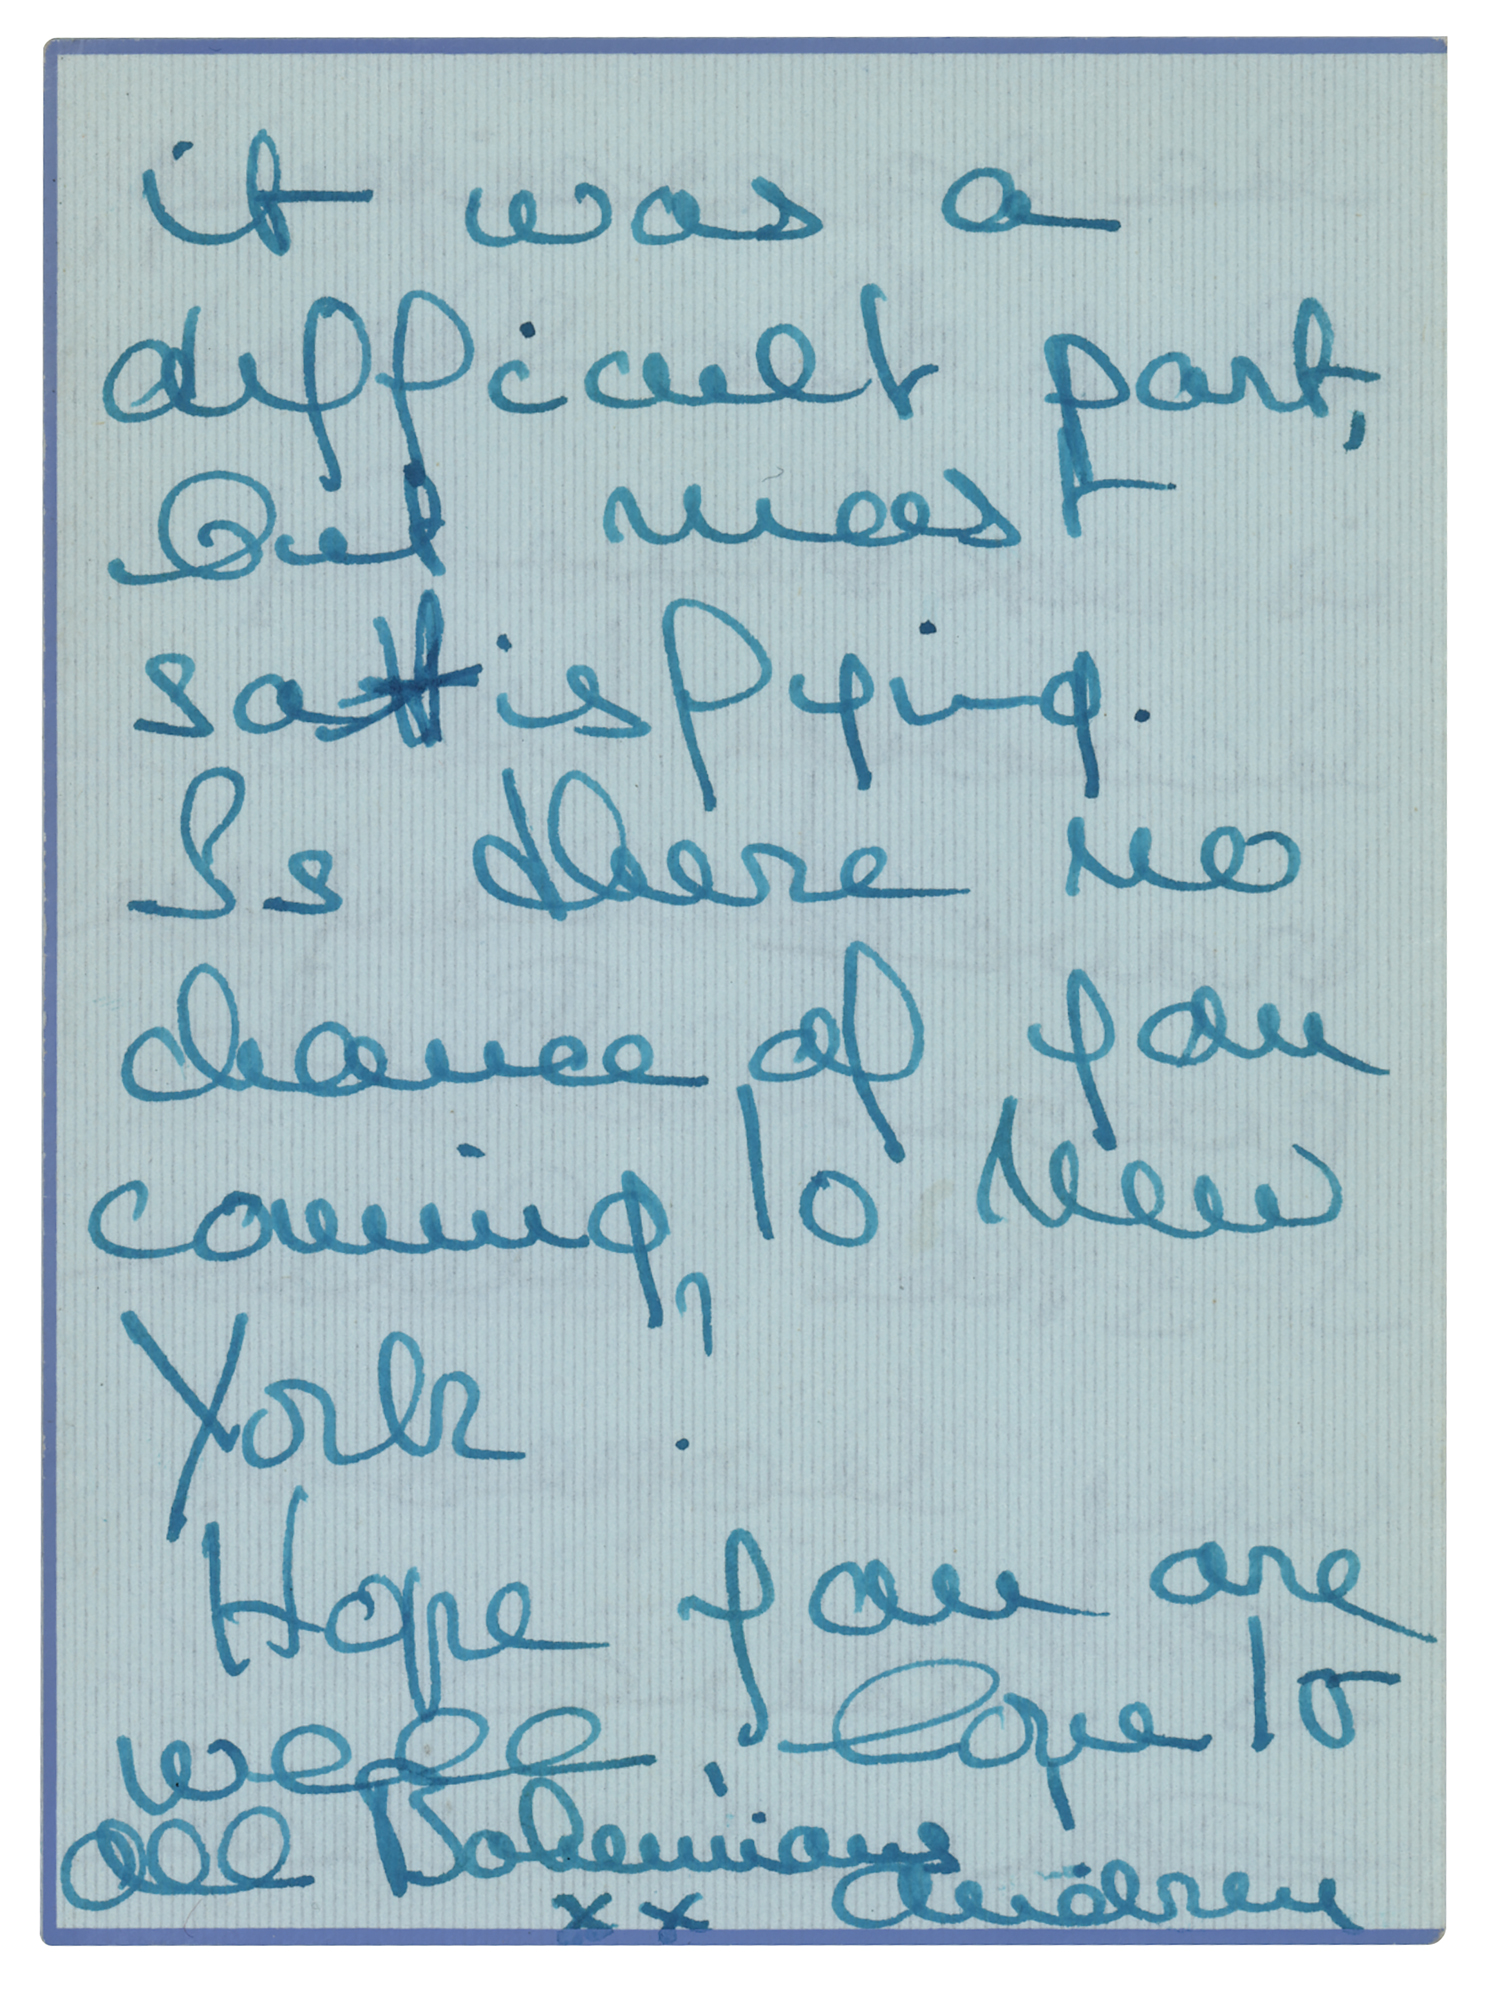 it was a
difficult part,
But most
sattisfying.
Is there no
chance of you
coming to New
York ?
Hope you are
well, love to
all Bohemians
xx Audrey